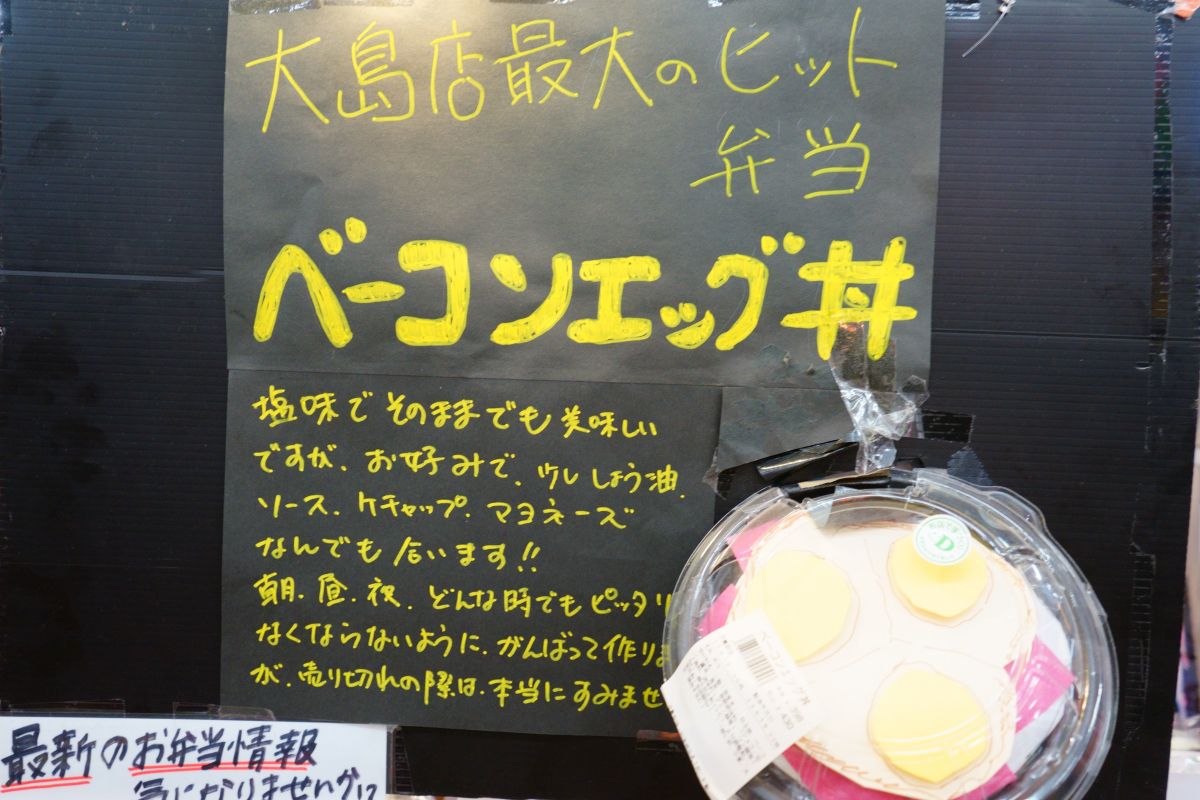 大島店最大のヒット
弁当
ベーコンエッグ丼
塩味でそのままでも美味しい
ですが、お好みで、ウレしょう油、
ソース、ケチャップ、マヨネーズ
なんでも合います!!
朝、昼、夜、どんな時でもピッタリ
なくならないように、がんばって作りま
が、売り切れの際は、本当にすみませ
D
ベーコンエッグ丼
最新のお弁当情報
気になりませんか